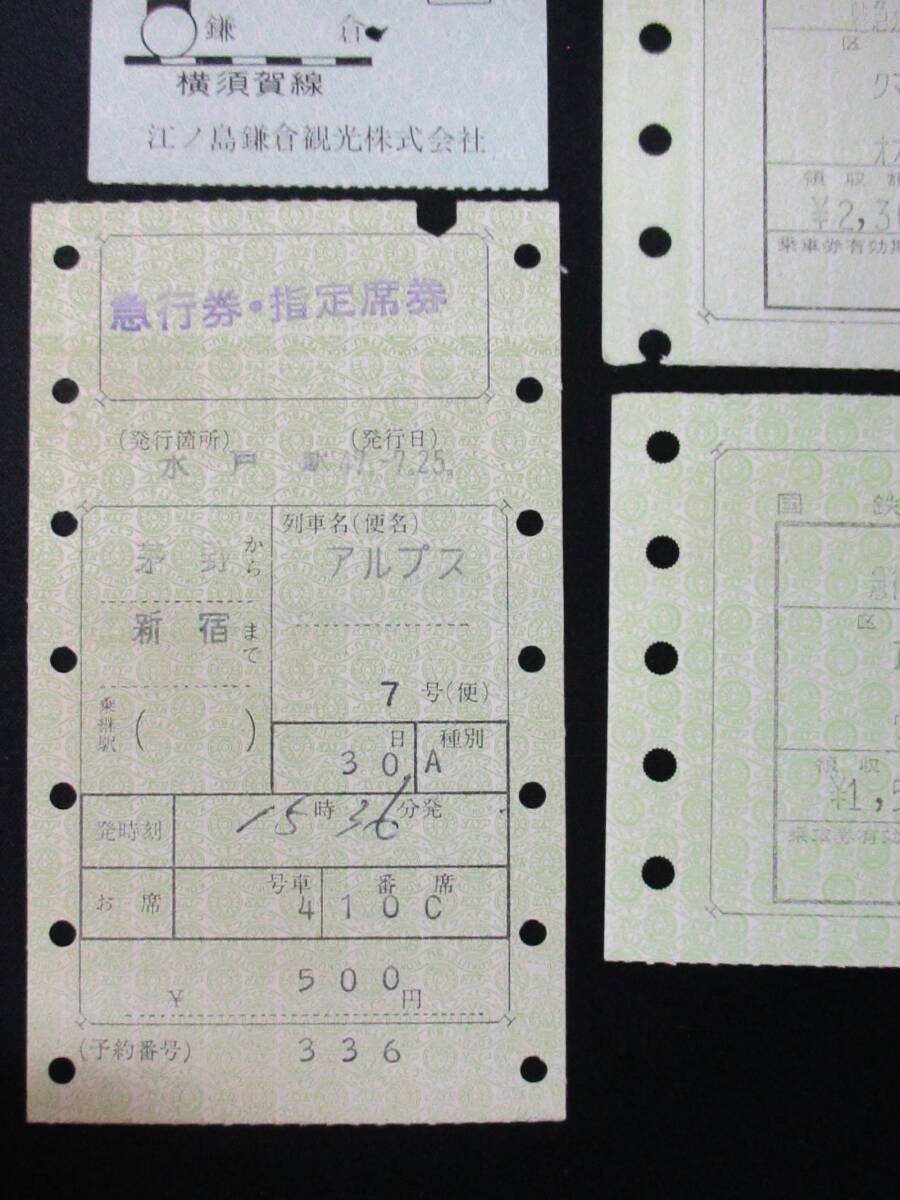 鎌 倉
横須賀線
江ノ島鎌倉観光株式会社
急行券・指定席券
(発行箇所) (発行日)
水戸駅 47.-7.25.
茅野から
新宿まで
乗継駅 ( )
列車名(便名)
アルプス
7号(便)
日 種別
30, A
発時刻 15時36分発
お席 号車 番席
4 10C
¥ 500円
(予約番号) 336
区
クマ
領収額
¥2,3
乗車券有効期
国鉄
区
領収
¥1,5
乗車券有効